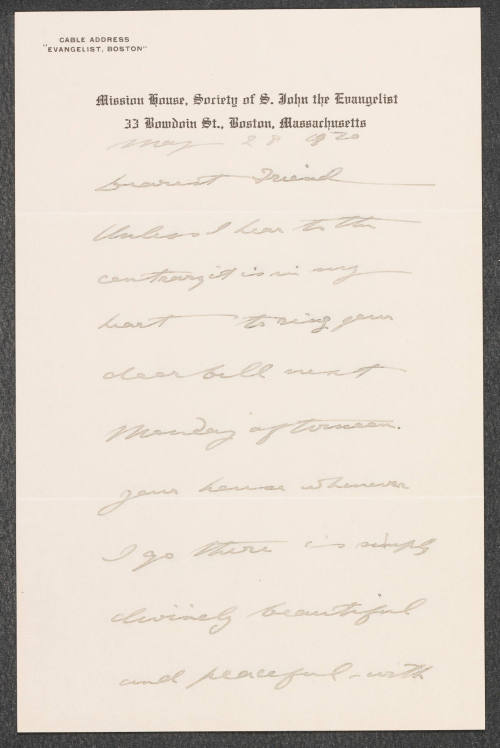 CABLE ADDRESS
"EVANGELIST, BOSTON"
Mission House, Society of S. John the Evangelist
33 Bowdoin St., Boston, Massachusetts
May 28 1920
Dearest Friend
Unless I hear to the
contrary it is in my
heart to ring your
dear bell next
Monday afternoon.
Your house whenever
I go there is simply
divinely beautiful
and peaceful - with